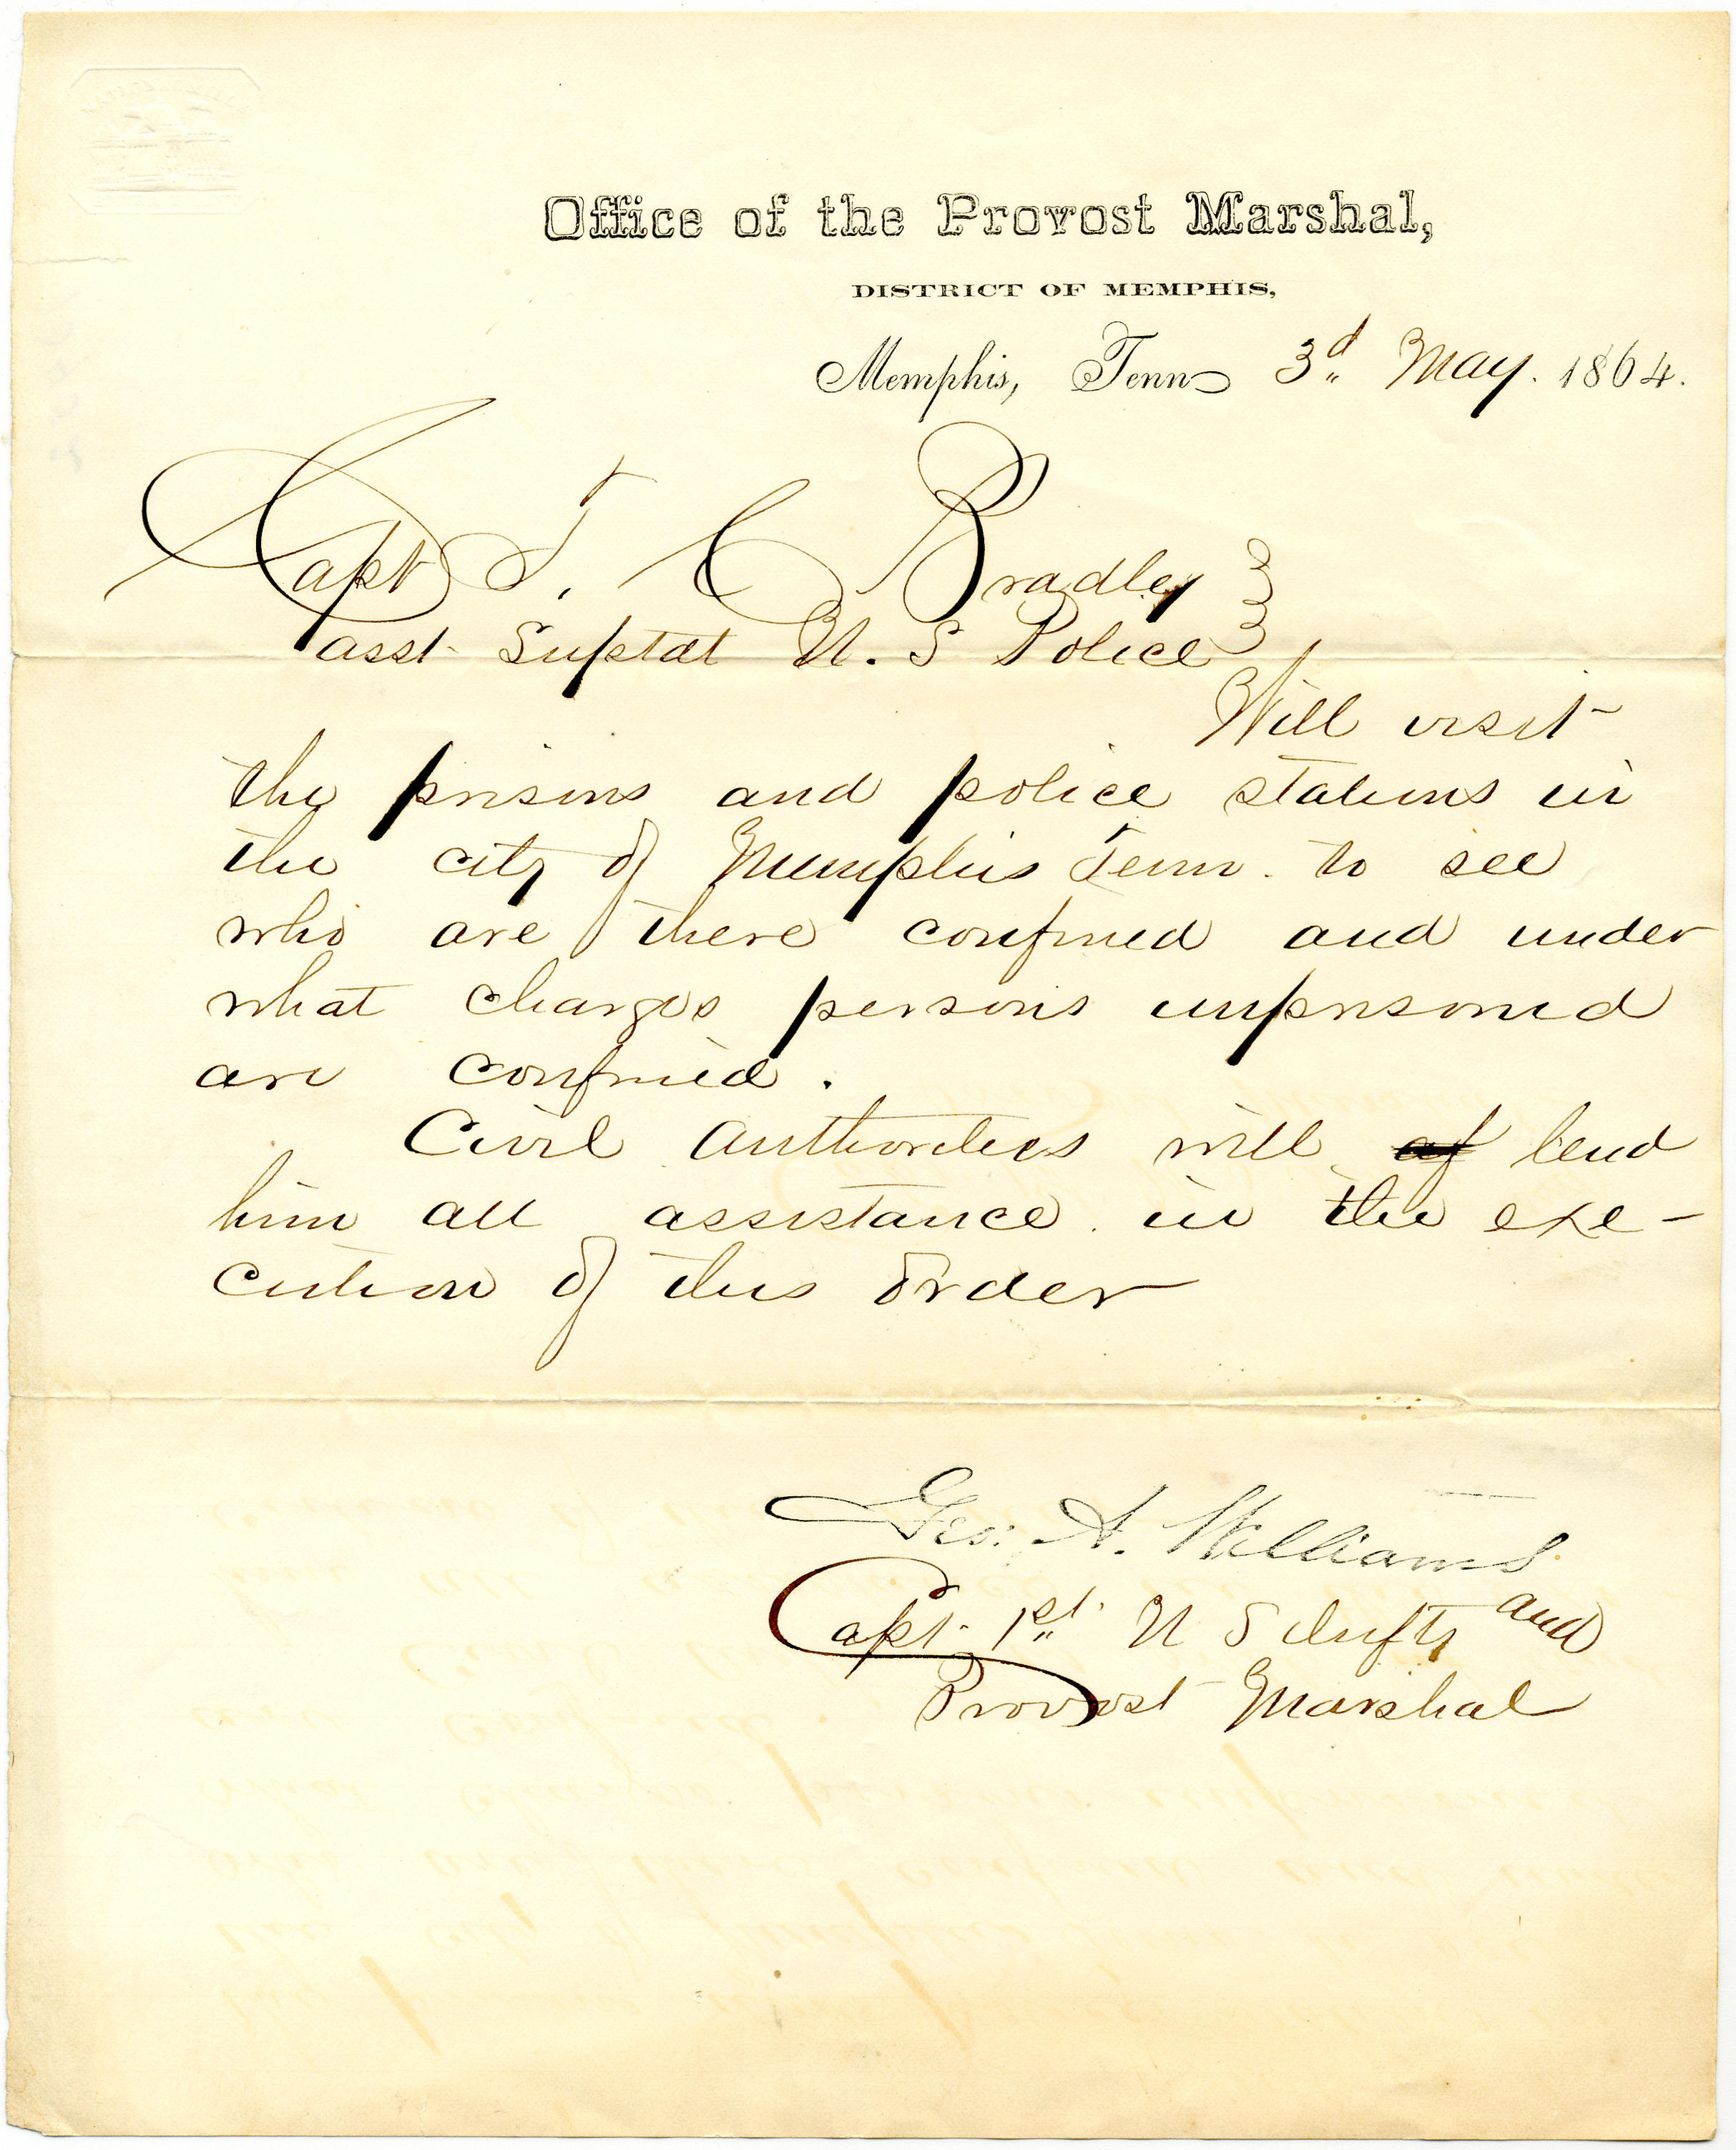 Office of the Provost Marshal,
DISTRICT OF MEMPHIS,
Memphis, Tenn 3d May. 1864.
Capt T. C Bradley
asst Suptdt U. S Police
Will visit
the prisons and police stations in
the city of Memphis Tenn. to see
who are there confined and under
what charges persons imprisoned
are confined.
Civil Authorities will af lend
him all assistance in the exe-
cution of this order
Geo. A. Williams
Capt. 1st. U S Infty and
Provost Marshal